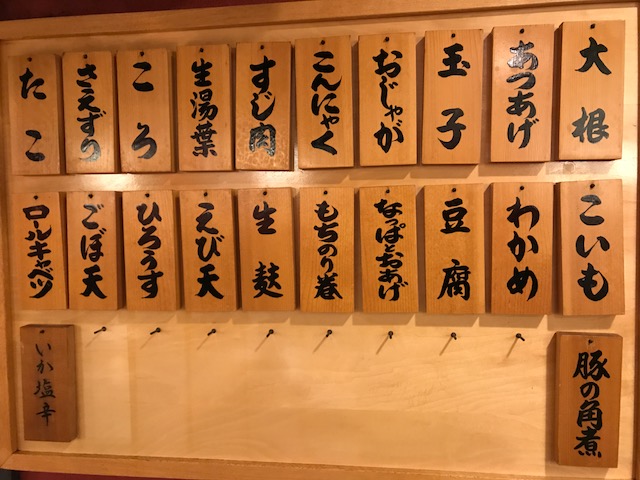 大根
あつあげ
玉子
おじゃが
こんにゃく
すじ肉
生湯葉
ころ
さえずり
たこ
こいも
わかめ
豆腐
なっぱおあげ
もちのり巻
生麩
えび天
ひろうす
ごぼ天
ロールキャベツ
豚の角煮
いか塩辛